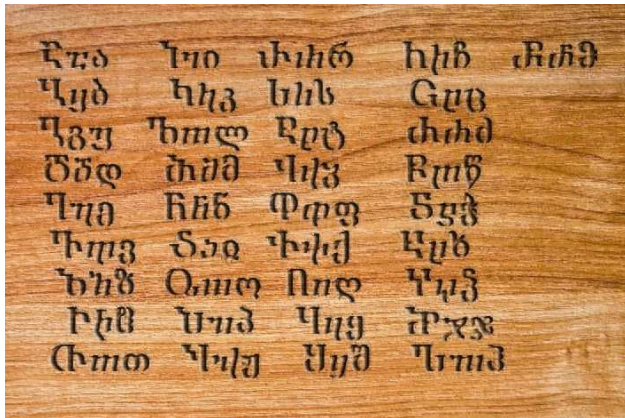 Ⴀⴀა Ⴈⴈი Ⴐⴐრ Ⴙⴙჩ Ⴥⴥჵ
Ⴁⴁბ Ⴉⴉკ Ⴑⴑს Ⴚⴚც
Ⴂⴂგ Ⴊⴊლ Ⴒⴒტ Ⴛⴛძ
Ⴃⴃდ Ⴋⴋმ Ⴣⴣჳ Ⴜⴜწ
Ⴄⴄე Ⴌⴌნ Ⴔⴔფ Ⴝⴝჭ
Ⴅⴅვ Ⴢⴢჲ Ⴕⴕქ Ⴞⴞხ
Ⴆⴆზ Ⴍⴍო Ⴖⴖღ Ⴤⴤჴ
Ⴡⴡჱ Ⴎⴎპ Ⴗⴗყ Ⴟⴟჯ
Ⴇⴇთ Ⴏⴏჟ Ⴘⴘშ Ⴠⴠჰ